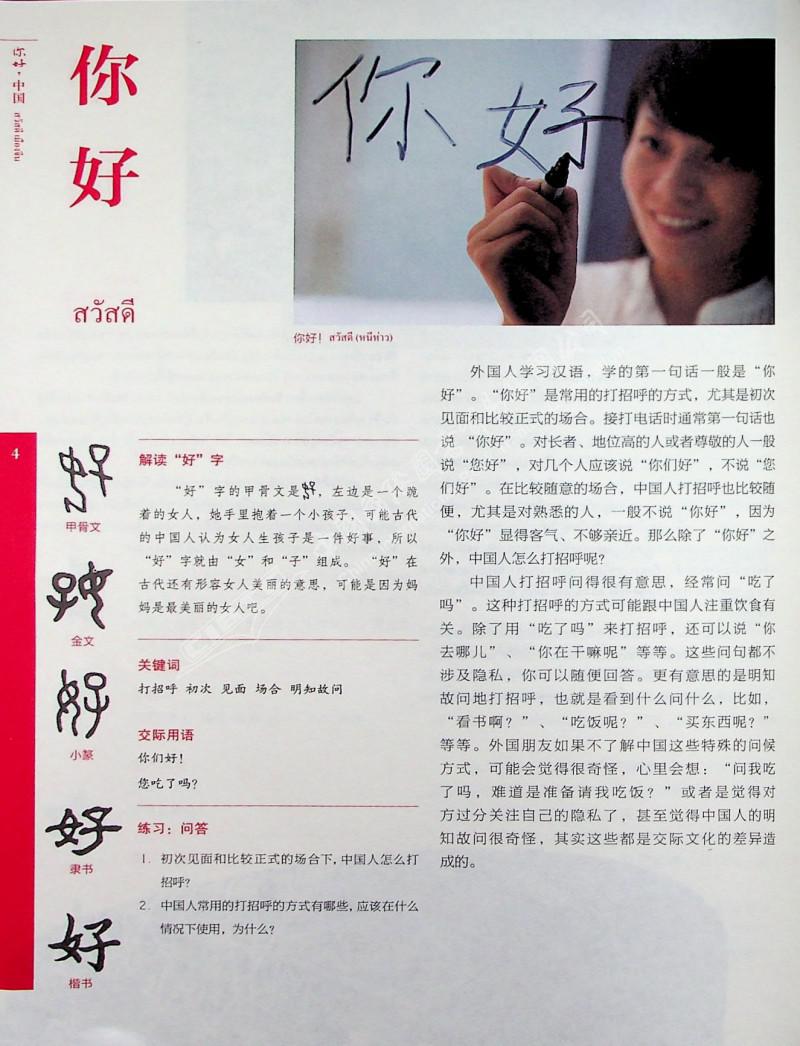 你好·中国 สวัสดีเมืองจีน
你
好
สวัสดี
你好
你好！ สวัสดี (หนีห่าว)
4
甲骨文
金文
小篆
好
隶书
好
楷书
解读“好”字
“好”字的甲骨文是，左边是一个跪
着的女人，她手里抱着一个小孩子，可能古代
的中国人认为女人生孩子是一件好事，所以
“好”字就由“女”和“子”组成。 “好”在
古代还有形容女人美丽的意思，可能是因为妈
妈是最美丽的女人吧。
关键词
打招呼 初次 见面 场合 明知故问
交际用语
你们好！
您吃了吗？
练习：问答
1. 初次见面和比较正式的场合下，中国人怎么打
招呼？
2. 中国人常用的打招呼的方式有哪些，应该在什么
情况下使用，为什么？
外国人学习汉语，学的第一句话一般是“你
好”。“你好”是常用的打招呼的方式，尤其是初次
见面和比较正式的场合。接打电话时通常第一句话也
说 “你好”。对长者、地位高的人或者尊敬的人一般
说“您好”，对几个人应该说“你们好”，不说“您
们好”。在比较随意的场合，中国人打招呼也比较随
便，尤其是对熟悉的人，一般不说“你好”，因为
“你好”显得客气、不够亲近。那么除了“你好”之
外，中国人怎么打招呼呢？
中国人打招呼问得很有意思，经常问“吃了
吗”。这种打招呼的方式可能跟中国人注重饮食有
关。除了用“吃了吗”来打招呼，还可以说“你
去哪儿”、“你在干嘛呢”等等。这些问句都不
涉及隐私，你可以随便回答。更有意思的是明知
故问地打招呼，也就是看到什么问什么，比如，
“看书啊？”、“吃饭呢？”、“买东西呢？”
等等。外国朋友如果不了解中国这些特殊的问候
方式，可能会觉得很奇怪，心里会想：“问我吃
了吗，难道是准备请我吃饭？”或者是觉得对
方过分关注自己的隐私了，甚至觉得中国人的明
知故问很奇怪，其实这些都是交际文化的差异造
成的。